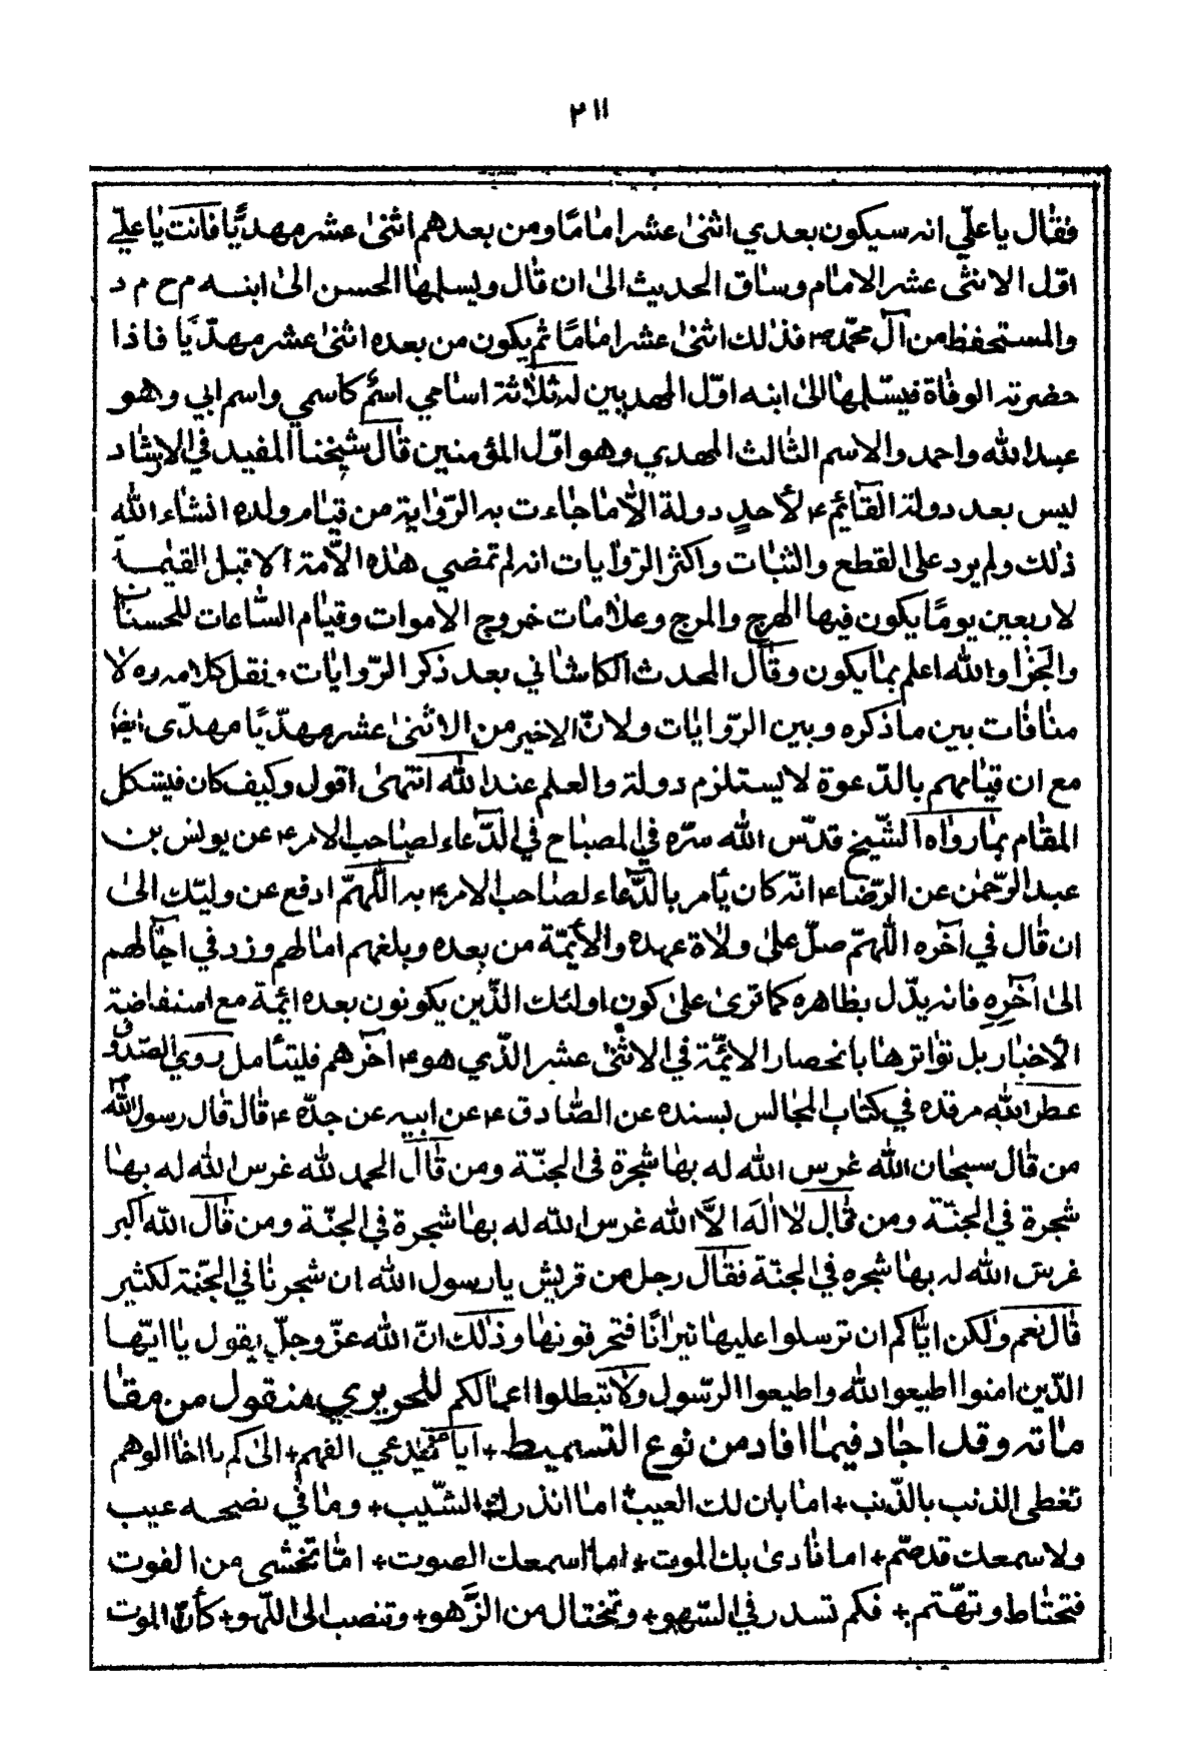 ٢١١
فقال يا علّي انه سيكون بعدي اثنى عشر اماما ومن بعدهم اثنى عشر مهديًّا فانت يا علّي
اوّل الاثنى عشر الامام وساق الحديث الى ان قال ويسلمها الحسن الى ابنه م ح م د
والمستحفظ من آل محمّد ص فذلك اثنى عشر امامًا ثم يكون من بعده اثنى عشر مهديّا فاذا
حضرته الوفاة فيسّلمها الى ابنه اوّل المهديين له ثلاثة اسامي اسم كاسمي واسم ابي وهو
عبد الله واحمد والاسم الثالث المهدي وهو اوّل المؤمنين قال شيخنا المفيد في الارشاد
ليس بعد دولة القائم ع لأحدٍ دولة الّا ما جاءت به الرّواية من قيام ولده انشاء الله
ذلك ولم يرد على القطع والثبات واكثر الرّوايات انه لم تمضي هذه الامّة الا قبل القيمة
لاربعين يومًا يكون فيها الهرج والمرج وعلامات خروج الاموات وقيام السّاعات للحسنات
والجزا والله اعلم بما يكون وقال المحدث الكاشاني بعد ذكر الرّوايات ونقل كلامه ره لا
منافات بين ما ذكره وبين الرّوايات ولانّ الاخير من الاثنى عشر مهديّا مهدّى ايضا
مع ان قيامهم بالدّعوة لا يستلزم دولة والعلم عند الله انتهى اقول وكيف كان فيشكل
المقام بما رواه الشّيخ قدّس الله سرّه في المصباح في الدّعاء لصاحب الامر ع عن يونس بن
عبد الرّحمن عن الرّضا ع انّه كان يأمر بالدّعاء لصاحب الامر ع به اللّهمّ ادفع عن وليّك الى
ان قال في آخره اللّهمّ صلّ على ولاة عهده والأئمّة من بعده وبلغهم امالهم وزد في اجالهم
الى آخره فانه يدّل بظاهره كما ترى على كون اولئك الذّين يكونون بعده ائمة مع استفاضة
الأخبار بل تواترها بانحصار الائمّة في الاثنى عشر الذّي هو ع آخرهم فليتأمل روي الصّدوق
عطر الله مرقده في كتاب المجالس بسنده عن الصّادق ع عن ابيه عن جدّه ع قال قال رسول الله ص
من قال سبحان الله غرس الله له بها شجرة في الجنّة ومن قال الحمد لله غرس الله له بها
شجرة في الجنّة ومن قال لا اله الّا الله غرس الله له بها شجرة في الجنّة ومن قال الله اكبر
غرس الله له بها شجره في الجنّة فقال رجل من قريش يا رسول الله ان شجرنا في الجنّة لكثير
قال نعم ولكن ايّاكم ان ترسلوا عليها نيرانًا فتحرقونها وذلك انّ الله عزّ وجلّ يقول يا ايّها
الذّين امنوا اطيعوا الله واطيعوا الرّسول ولا تبطلوا اعمالكم للحريري منقول من مقا
ماته وقد اجاد فيما افاد من نوع التسميط + ايا من يدعي الفهم + الى كم يا اخا الوهم
تغطى الذنب بالذّنب + اما بان لك العيب اما انذرك الشّيب + وما في نصحه عيب
ولا سمعك قد صّم + اما نادى بك الموت + اما اسمعك الصوت + امّا تخشى من الفوت
فتحتاط وتهّتم + فكم تسدر في السّهو + وتختال من الزّهو + وتنصب الى اللّهو + كأنّ الموت